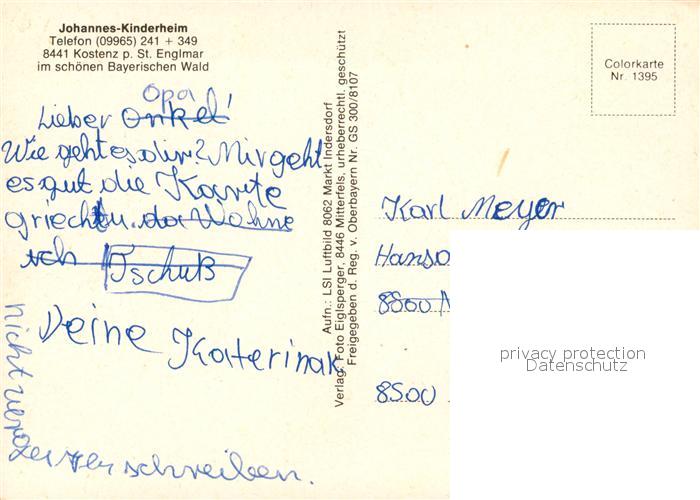 Johannes-Kinderheim
Telefon (09965) 241 + 349
8441 Kostenz p. St. Englmar
im schönen Bayerischen Wald
Opa
Lieber Onkel!
Wie geht es dir? Mir geht
es gut die Karte
griechtu. da Wohne
ich Tschuß
Deine Katerina
nicht verge
schreiben.
Aufn.: LSI Luftbild 8062 Markt Indersdorf
Verlag: Foto Eiglsperger, 8446 Mitterfels, urheberrechtl. geschützt
Freigegeben d. Reg. v. Oberbayern Nr. GS 300/8107
Colorkarte
Nr. 1395
Karl Meyer
Hansa
8500 N
8500
privacy protection
Datenschutz